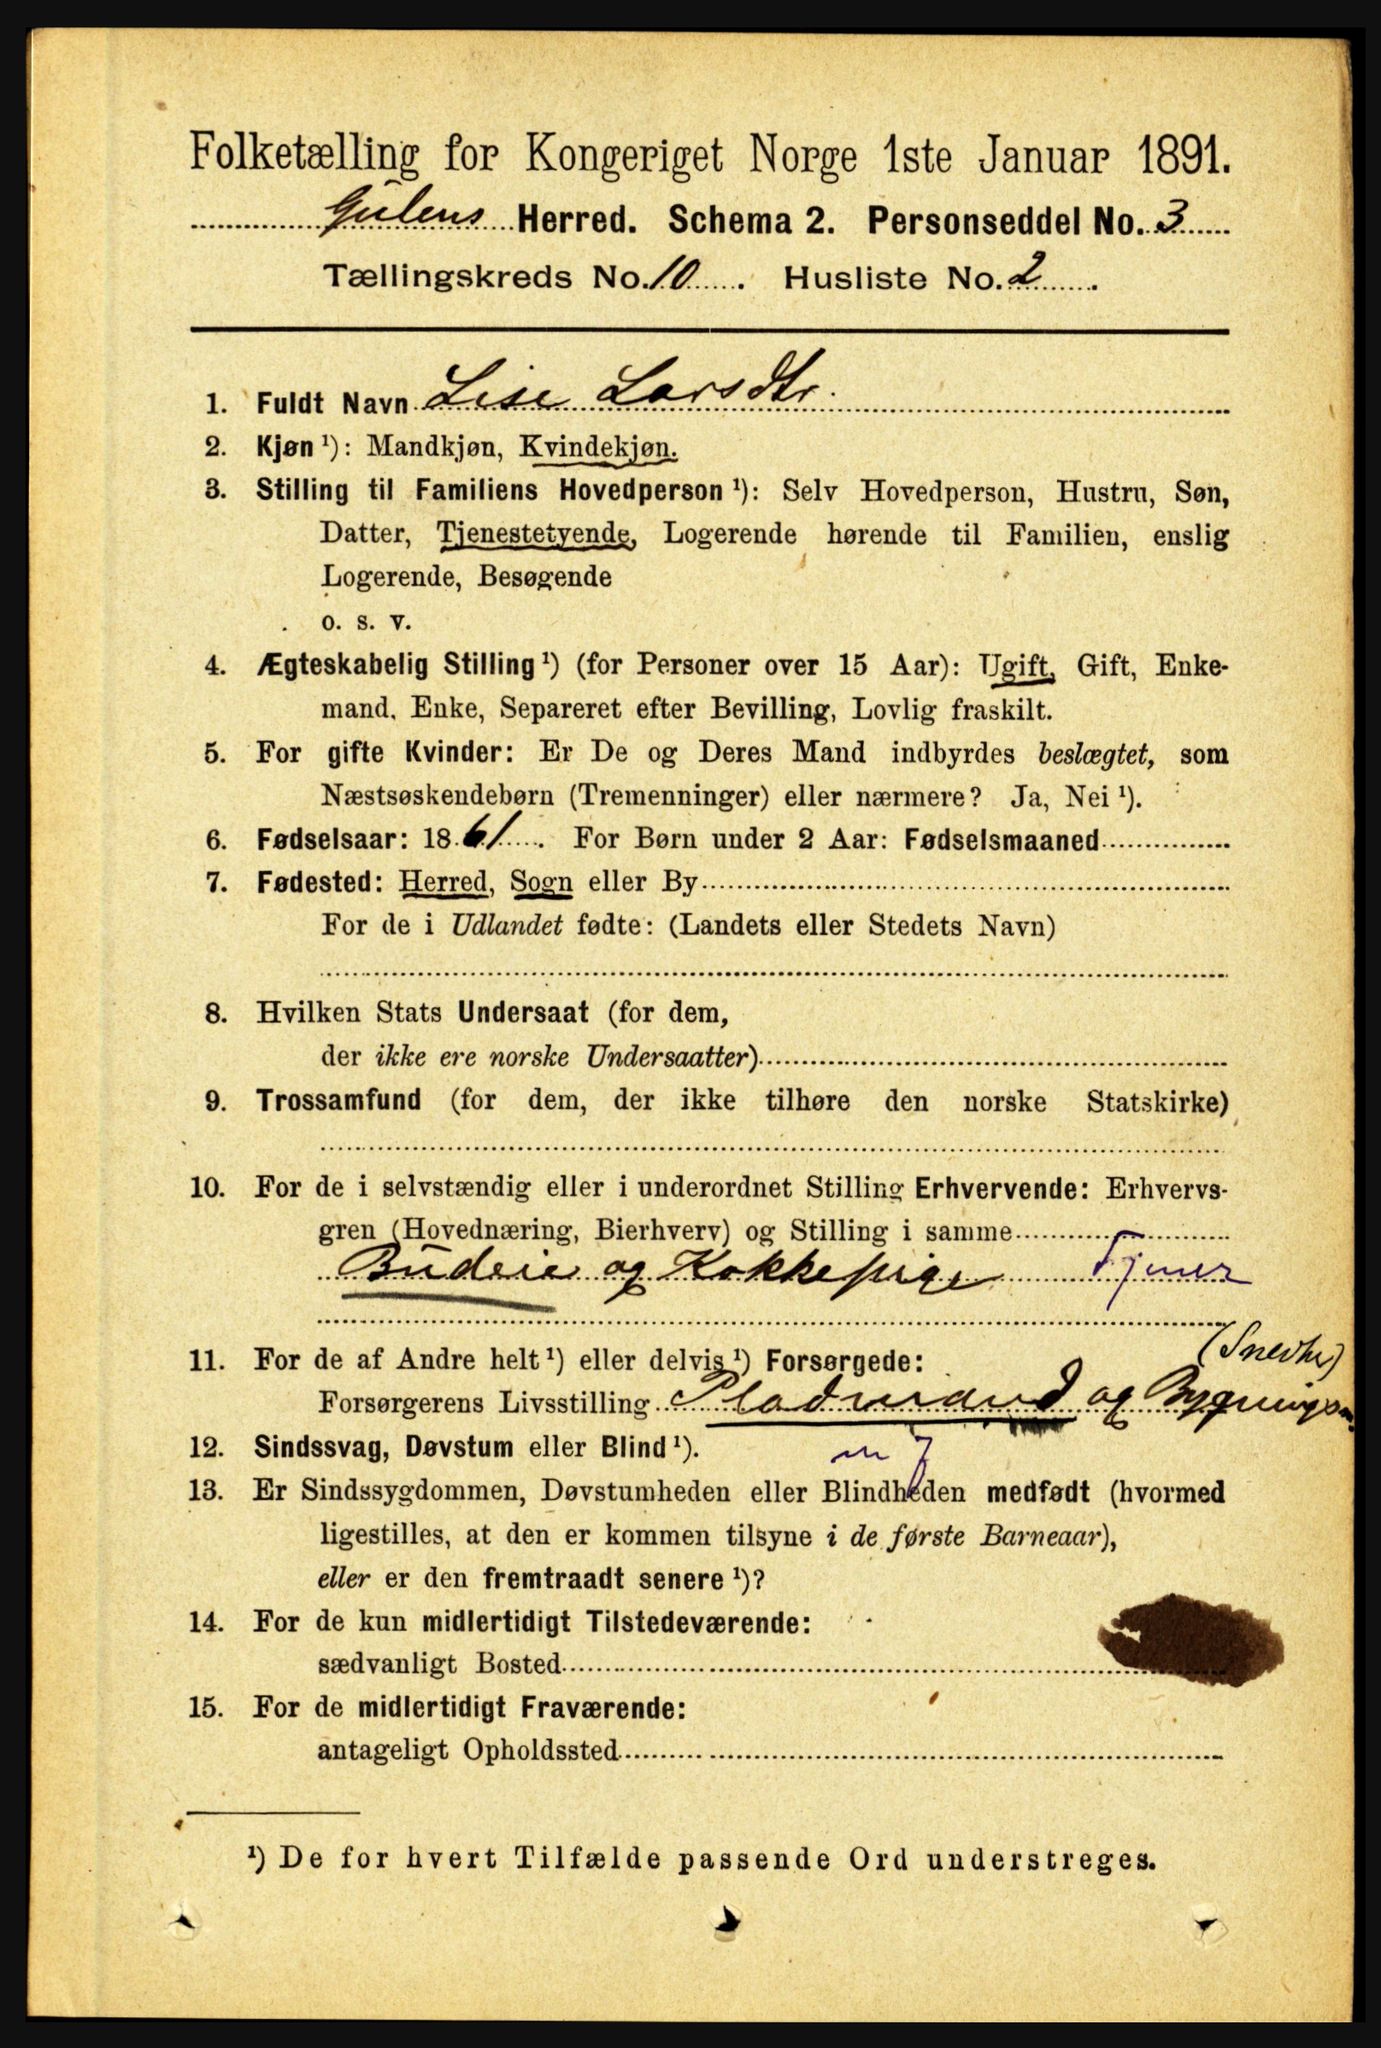 Folketælling for Kongeriget Norge 1ste Januar 1891.
Gulens Herred. Schema 2. Personseddel No. 3
Tællingskreds No. 10. Husliste No. 2.
1. Fuldt Navn Lise Larsdtr.
2. Kjøn ¹): Mandkjøn, Kvindekjøn.
3. Stilling til Familiens Hovedperson ¹): Selv Hovedperson, Hustru, Søn,
Datter, Tjenestetyende, Logerende hørende til Familien, enslig
Logerende, Besøgende
o. s. v.
4. Ægteskabelig Stilling ¹) (for Personer over 15 Aar): Ugift, Gift, Enke-
mand, Enke, Separeret efter Bevilling, Lovlig fraskilt.
5. For gifte Kvinder: Er De og Deres Mand indbyrdes beslægtet, som
Næstsøskendebørn (Tremenninger) eller nærmere? Ja, Nei ¹).
6. Fødselsaar: 1861. For Børn under 2 Aar: Fødselsmaaned
7. Fødested: Herred, Sogn eller By
For de i Udlandet fødte: (Landets eller Stedets Navn)
8. Hvilken Stats Undersaat (for dem,
der ikke ere norske Undersaatter)
9. Trossamfund (for dem, der ikke tilhøre den norske Statskirke)
10. For de i selvstændig eller i underordnet Stilling Erhvervende: Erhvervs-
gren (Hovednæring, Bierhverv) og Stilling i samme
Budeie og Kokkepige Tjener
11. For de af Andre helt ¹) eller delvis ¹) Forsørgede: (Snedker)
Forsørgerens Livsstilling Pladsmand og Bygningsm.
12. Sindssvag, Døvstum eller Blind ¹).
13. Er Sindssygdommen, Døvstumheden eller Blindheden medfødt (hvormed
ligestilles, at den er kommen tilsyne i de første Barneaar),
eller er den fremtraadt senere ¹)?
14. For de kun midlertidigt Tilstedeværende:
sædvanligt Bosted
15. For de midlertidigt Fraværende:
antageligt Opholdssted
¹) De for hvert Tilfælde passende Ord understreges.